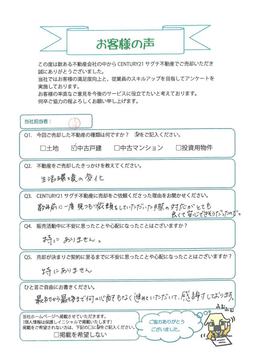 お客様の声
この度は数ある不動産会社の中から CENTURY21 サグチ不動産でご売却いただき
誠にありがとうございました。
当社ではお客様の満足度向上と、従業員のスキルアップを目指してアンケートを
実施しております。
お客様の率直なご意見を今後のサービスに役立てたいと考えております。
何卒ご協力の程よろしくお願い申し上げます。
当社担当者:
Q1. 今回ご売却した不動産の種類は何ですか?
□土地 ☑中古戸建 □中古マンション □投資用物件
Q2. 不動産をご売却したきっかけを教えてください。
生活環境の変化
Q3. CENTURY21 サグチ不動産に売却をご依頼くださった理由をお聞かせください。
数年前に一度見積り依頼をしていただいた時の対応がとても
良くて安心できそうだったので。
Q4. 販売活動中に不安に思ったことや心配なことはございますか?
特にありません。
Q5. 売却が決まりご契約に至るまでに不安に思ったことや心配なことはございますか?
特にありません
ひと言ご自由にお書きください。
最初から最後まで何の心配もなく進めていただいて、感謝しております。
当社ホームページへ掲載させていただきます。
□掲載を希望しない
ご協力ありがとう
ございました